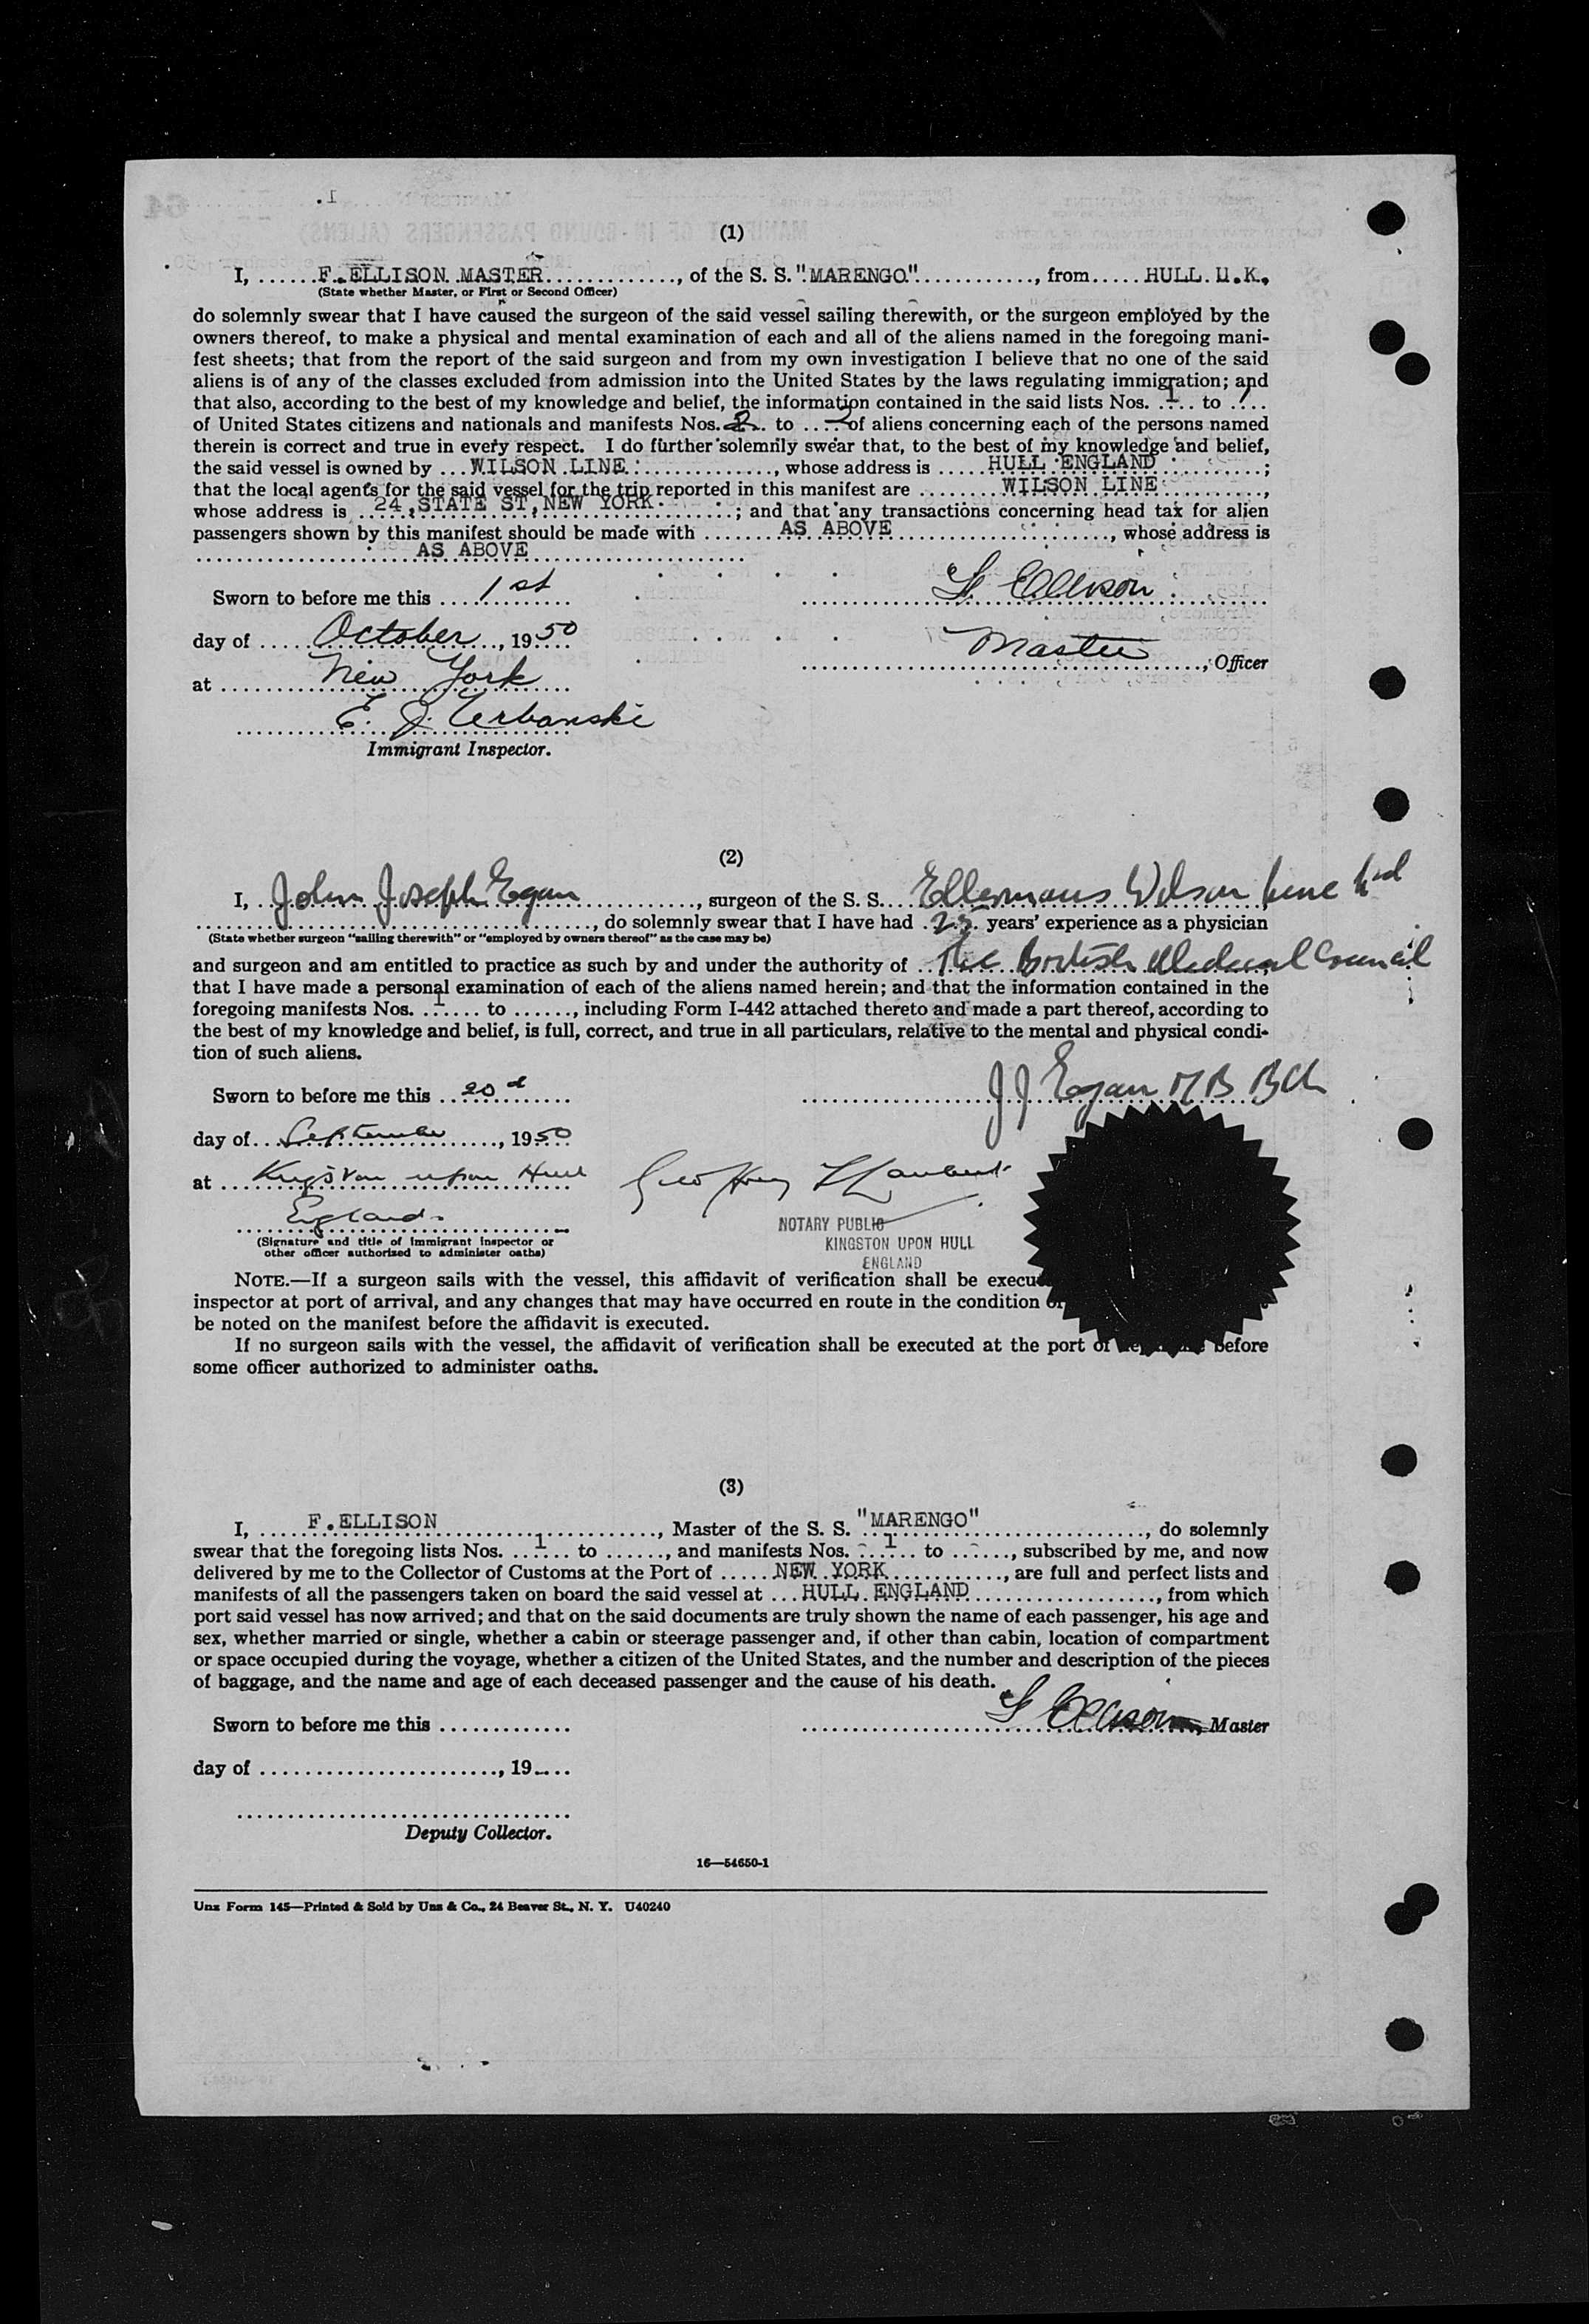 (1)
I, ......F. ELLISON MASTER..............., of the S. S. "MARENGO"............, from..... HULL U.K.,
(State whether Master, or First or Second Officer)
do solemnly swear that I have caused the surgeon of the said vessel sailing therewith, or the surgeon employed by the
owners thereof, to make a physical and mental examination of each and all of the aliens named in the foregoing mani-
fest sheets; that from the report of the said surgeon and from my own investigation I believe that no one of the said
aliens is of any of the classes excluded from admission into the United States by the laws regulating immigration; and
that also, according to the best of my knowledge and belief, the information contained in the said lists Nos. 1 to 1
of United States citizens and nationals and manifests Nos. 2 to 2 of aliens concerning each of the persons named
therein is correct and true in every respect. I do further solemnly swear that, to the best of my knowledge and belief,
the said vessel is owned by ...WILSON LINE..............., whose address is .....HULL ENGLAND..........;
that the local agents for the said vessel for the trip reported in this manifest are .........WILSON LINE..........,
whose address is ..24, STATE ST, NEW YORK........; and that any transactions concerning head tax for alien
passengers shown by this manifest should be made with ........AS ABOVE...................., whose address is
....................AS ABOVE....................
Sworn to before me this ....1st........ F Ellison
day of ....October...., 1950 Master, Officer
at ........New York........
E. J. Urbanski
Immigrant Inspector.
(2)
I, ..John Joseph Egan............., surgeon of the S. S....Ellermans Wilson Line Ltd
........................................, do solemnly swear that I have had .25. years' experience as a physician
(State whether surgeon "sailing therewith" or "employed by owners thereof" as the case may be)
and surgeon and am entitled to practice as such by and under the authority of ..The British Medical Council
that I have made a personal examination of each of the aliens named herein; and that the information contained in the
foregoing manifests Nos. .1..... to ......, including Form I-442 attached thereto and made a part thereof, according to
the best of my knowledge and belief, is full, correct, and true in all particulars, relative to the mental and physical condi-
tion of such aliens.
Sworn to before me this ..20........ J J Egan M B B Ch
day of...September......, 1950
at ...Kingston upon Hull
England
NOTARY PUBLIC
KINGSTON UPON HULL
ENGLAND
(Signature and title of immigrant inspector or
other officer authorized to administer oaths)
NOTE.—If a surgeon sails with the vessel, this affidavit of verification shall be
inspector at port of arrival, and any changes that may have occurred en route in the condition
be noted on the manifest before the affidavit is executed.
If no surgeon sails with the vessel, the affidavit of verification shall be executed at the port of before
some officer authorized to administer oaths.
(3)
I, ......F. ELLISON........................, Master of the S. S. "MARENGO"...................., do solemnly
swear that the foregoing lists Nos. ...1... to ......, and manifests Nos. ...1... to ......, subscribed by me, and now
delivered by me to the Collector of Customs at the Port of .....NEW YORK............, are full and perfect lists and
manifests of all the passengers taken on board the said vessel at ...HULL ENGLAND...................., from which
port said vessel has now arrived; and that on the said documents are truly shown the name of each passenger, his age and
sex, whether married or single, whether a cabin or steerage passenger and, if other than cabin, location of compartment
or space occupied during the voyage, whether a citizen of the United States, and the number and description of the pieces
of baggage, and the name and age of each deceased passenger and the cause of his death.
Sworn to before me this ............. F Ellison, Master
day of ........................, 19....
Deputy Collector.
16—54650-1
Unz Form 145—Printed & Sold by Unz & Co., 24 Beaver St., N. Y. U40240